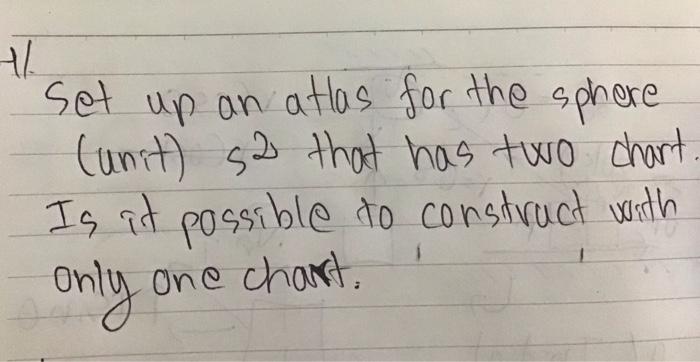 Set up an atlas for the sphere
(unit) s2 that has two chart.
Is it possible to construct with
only one chart.